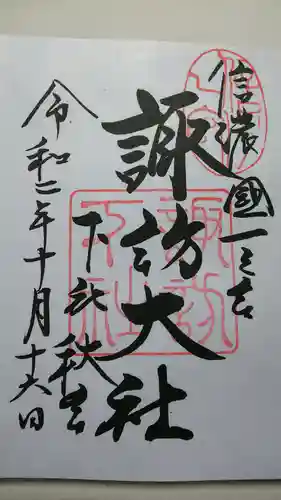 信濃國一之宮
諏訪大社
下社秋宮
令和二年十月十六日